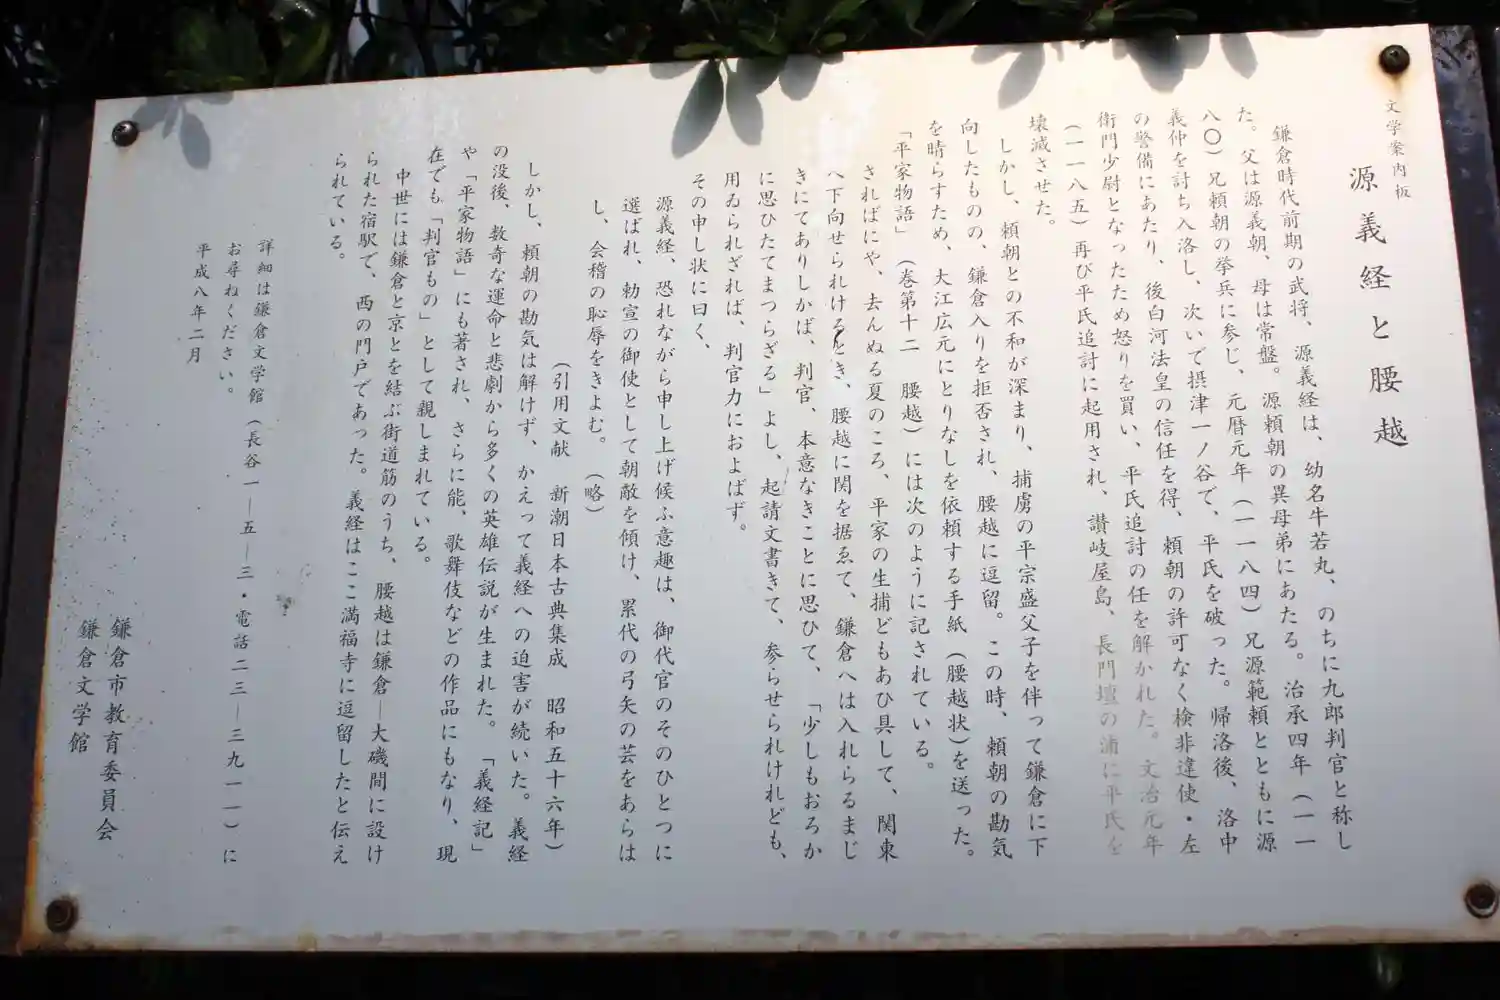 文学案内板
源義経と腰越
鎌倉時代前期の武将、源義経は、幼名牛若丸、のちに九郎判官と称し
た。父は源義朝、母は常盤。源頼朝の異母弟にあたる。治承四年(一一
八〇)兄頼朝の挙兵に参じ、元暦元年(一一八四)兄源範頼とともに源
義仲を討ち入洛し、次いで摂津一ノ谷で、平氏を破った。帰洛後、洛中
の警備にあたり、後白河法皇の信任を得、頼朝の許可なく検非違使・左
衛門少尉となったため怒りを買い、平氏追討の任を解かれた。文治元年
(一一八五)再び平氏追討に起用され、讃岐屋島、長門壇の浦に平氏を
壊滅させた。
しかし、頼朝との不和が深まり、捕虜の平宗盛父子を伴って鎌倉に下
向したものの、鎌倉入りを拒否され、腰越に逗留。この時、頼朝の勘気
を晴らすため、大江広元にとりなしを依頼する手紙(腰越状)を送った。
「平家物語」(巻第十二 腰越)には次のように記されている。
さればにや、去んぬる夏のころ、平家の生捕どもあひ具して、関東
へ下向せられけるとき、腰越に関を据ゑて、鎌倉へは入れらるまじ
きにてありしかば、判官、本意なきことに思ひて、「少しもおろか
に思ひたてまつらざる」よし、起請文書きて、参らせられけれども、
用ゐられざれば、判官力におよばず。
その申し状に曰く、
源義経、恐れながら申し上げ候ふ意趣は、御代官のそのひとつに
選ばれ、勅宣の御使として朝敵を傾け、累代の弓矢の芸をあらは
し、会稽の恥辱をきよむ。(略)
(引用文献 新潮日本古典集成 昭和五十六年)
しかし、頼朝の勘気は解けず、かえって義経への迫害が続いた。義経
の没後、数奇な運命と悲劇から多くの英雄伝説が生まれた。「義経記」
や「平家物語」にも著され、さらに能、歌舞伎などの作品にもなり、現
在でも「判官もの」として親しまれている。
中世には鎌倉と京とを結ぶ街道筋のうち、腰越は鎌倉―大磯間に設け
られた宿駅で、西の門戸であった。義経はここ満福寺に逗留したと伝え
られている。
詳細は鎌倉文学館(長谷一―五―三・電話二三―三九一一)に
お尋ねください。
平成八年二月
鎌倉市教育委員会
鎌倉文学館